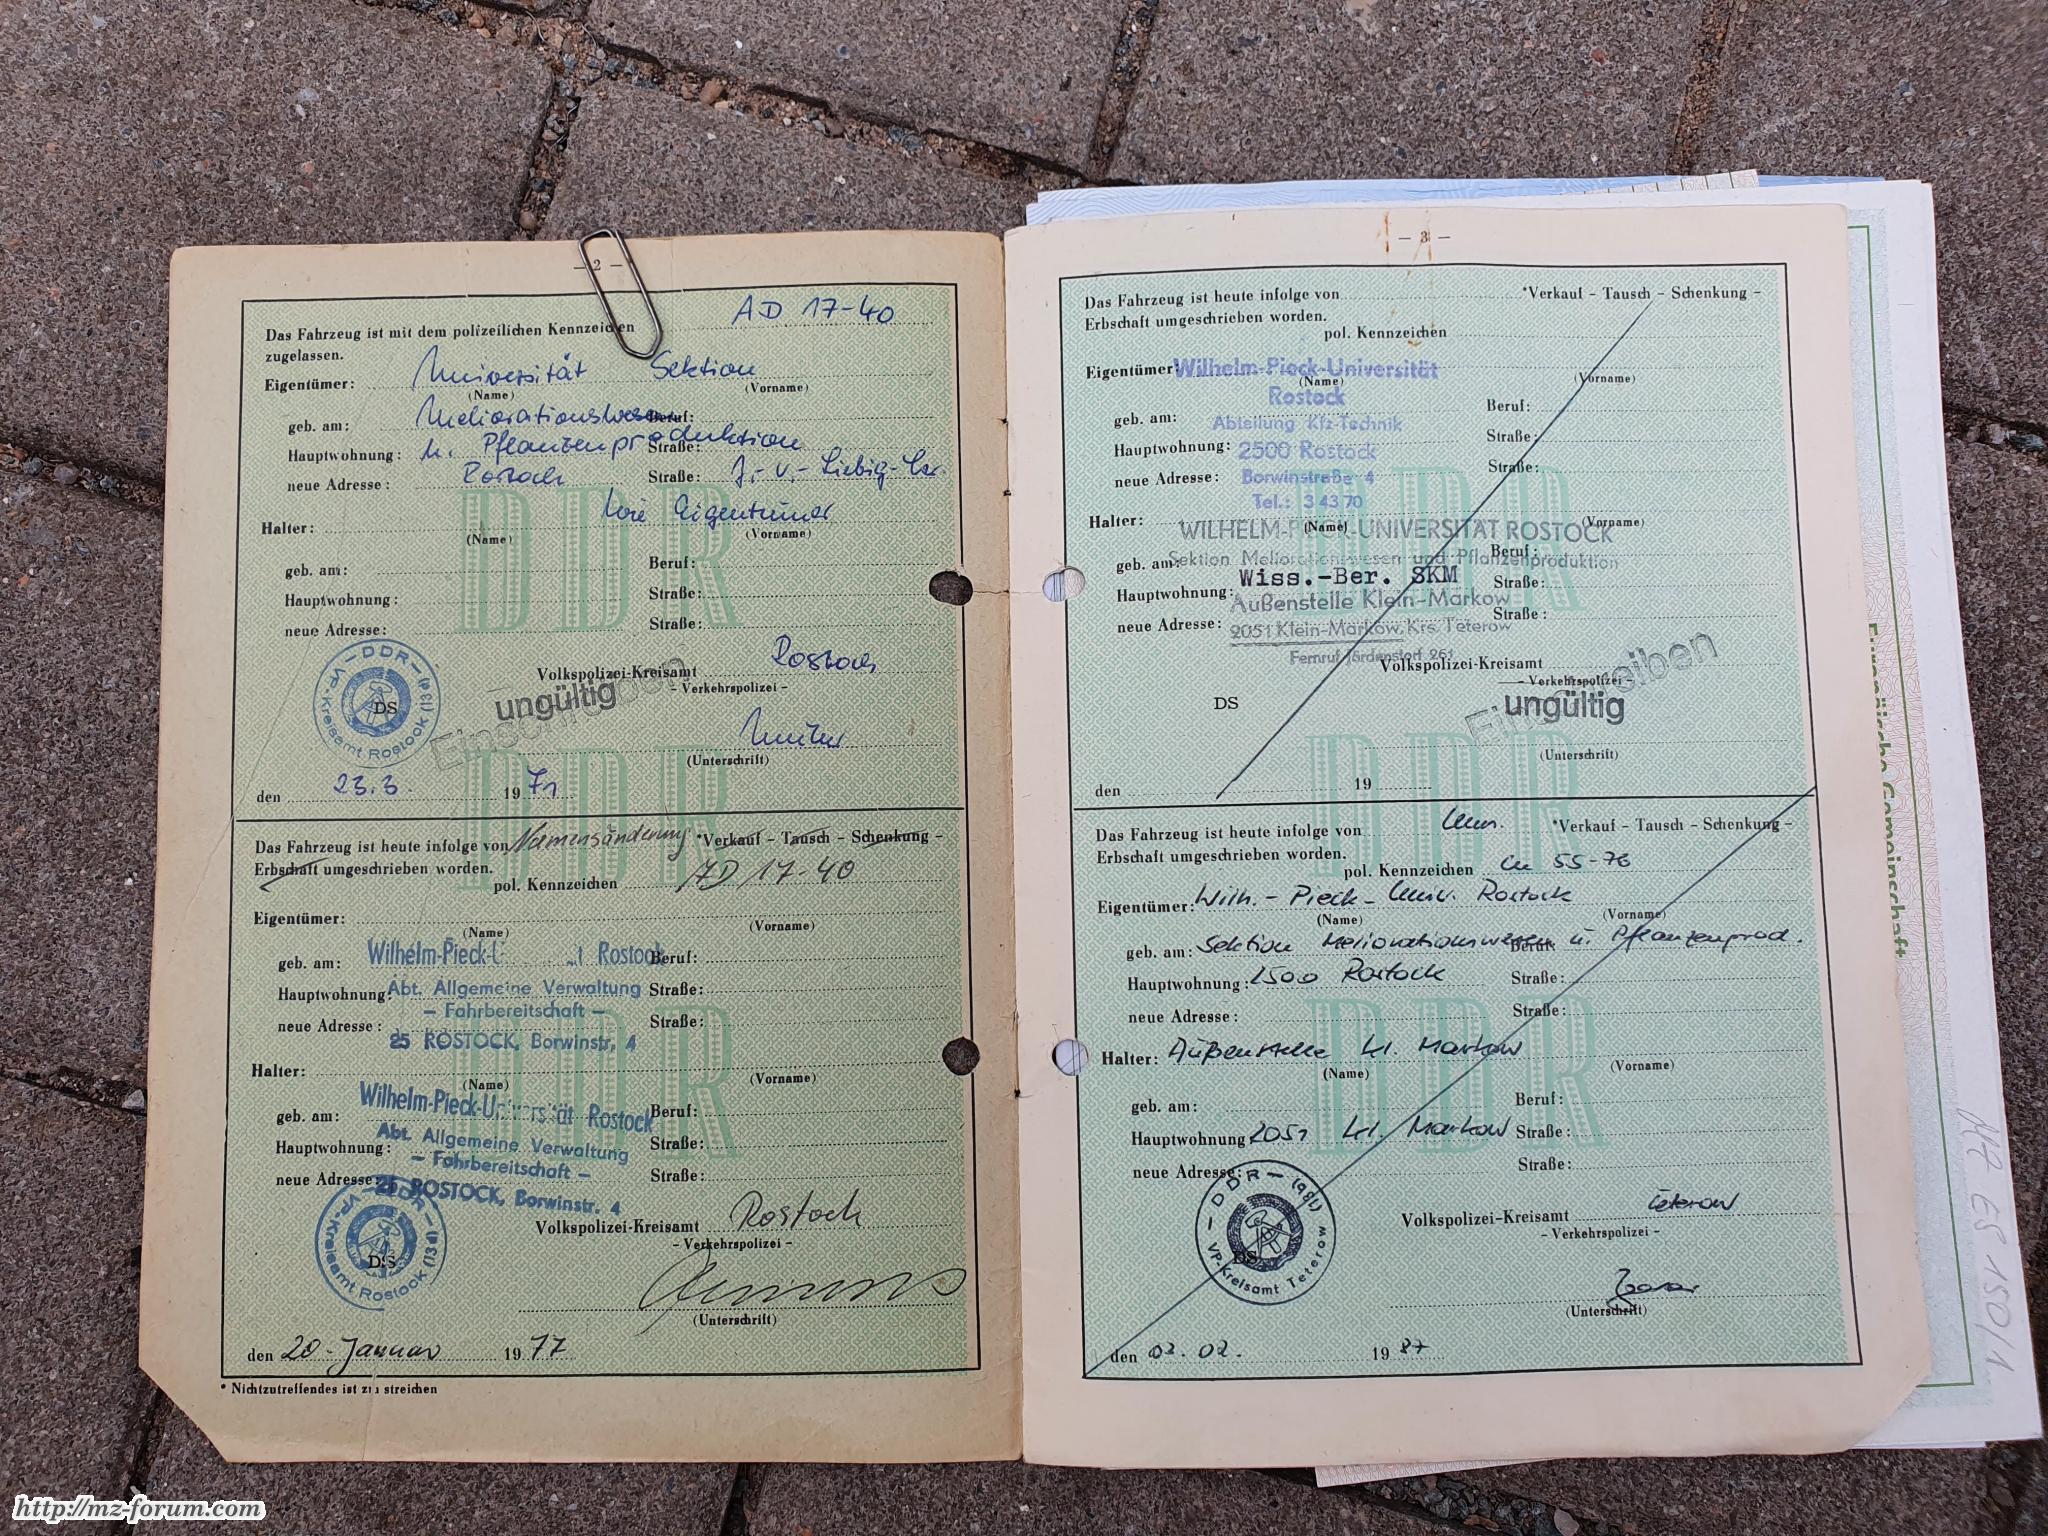 – 2 –
Das Fahrzeug ist mit dem polizeilichen Kennzeichen AD 17-40
zugelassen.
Eigentümer: Universität Sektion
(Name) (Vorname)
geb. am: Meliorationswesen Beruf:
Hauptwohnung: u. Pflanzenproduktion Straße:
neue Adresse: Rostock Straße: J.-v.-Liebig-
Halter: wie Eigentümer
(Name) (Vorname)
geb. am: Beruf:
Hauptwohnung: Straße:
neue Adresse: Straße:
DDR
VP-Kreisamt Rostock
DS
Volkspolizei-Kreisamt Rostock
– Verkehrspolizei –
ungültig
Einschreiben
(Unterschrift)
den 23.3. 1971
Das Fahrzeug ist heute infolge von Namensänderung *Verkauf – Tausch – Schenkung –
Erbschaft umgeschrieben worden.
pol. Kennzeichen AD 17-40
Eigentümer:
(Name) (Vorname)
Wilhelm-Pieck-U t Rostock
geb. am: Beruf:
Hauptwohnung: Abt. Allgemeine Verwaltung Straße:
– Fahrbereitschaft –
neue Adresse: Straße:
25 ROSTOCK, Borwinstr. 4
Halter:
(Name) (Vorname)
Wilhelm-Pieck-Universität Rostock
geb. am: Beruf:
Abt. Allgemeine Verwaltung
Hauptwohnung: Straße:
– Fahrbereitschaft –
neue Adresse: Straße:
25 ROSTOCK, Borwinstr. 4
DDR
VP-Kreisamt Rostock
DS
Volkspolizei-Kreisamt Rostock
– Verkehrspolizei –
(Unterschrift)
den 20. Januar 1977
* Nichtzutreffendes ist zu streichen
– 3 –
Das Fahrzeug ist heute infolge von *Verkauf – Tausch – Schenkung –
Erbschaft umgeschrieben worden.
pol. Kennzeichen
Eigentümer: Wilhelm-Pieck-Universität
(Name) (Vorname)
Rostock
geb. am: Abteilung Kfz-Technik Beruf:
Hauptwohnung: 2500 Rostock Straße:
neue Adresse: Borwinstraße 4 Straße:
Tel.: 3 43 70
Halter: (Name) (Vorname)
WILHELM-PIECK-UNIVERSITÄT ROSTOCK
geb. am: Sektion Meliorationswesen und Pflanzenproduktion Beruf:
Wiss.-Ber. SKM Straße:
Hauptwohnung: Außenstelle Klein-Markow
neue Adresse: 2051 Klein-Markow, Krs. Teterow Straße:
Fernruf Jördenstorf 261
Volkspolizei-Kreisamt
– Verkehrspolizei –
DS
Einschreiben
ungültig
(Unterschrift)
den 19
Das Fahrzeug ist heute infolge von Um. *Verkauf – Tausch – Schenkung –
Erbschaft umgeschrieben worden.
pol. Kennzeichen 55-76
Eigentümer: Wilh.-Pieck-Univ. Rostock
(Name) (Vorname)
geb. am: Sektion Meliorationswesen u. Pflanzenprod. Beruf:
Hauptwohnung: 2500 Rostock Straße:
neue Adresse: Straße:
Halter: Außenstelle Kl. Markow
(Name) (Vorname)
geb. am: Beruf:
Hauptwohnung 2051 Kl. Markow Straße:
neue Adresse: Straße:
DDR
VP-Kreisamt Teterow
DS
Volkspolizei-Kreisamt Teterow
– Verkehrspolizei –
(Unterschrift)
den 03. 02. 1987
Europäische Gemeinschaft
MZ ES 150/1
http://mz-forum.com